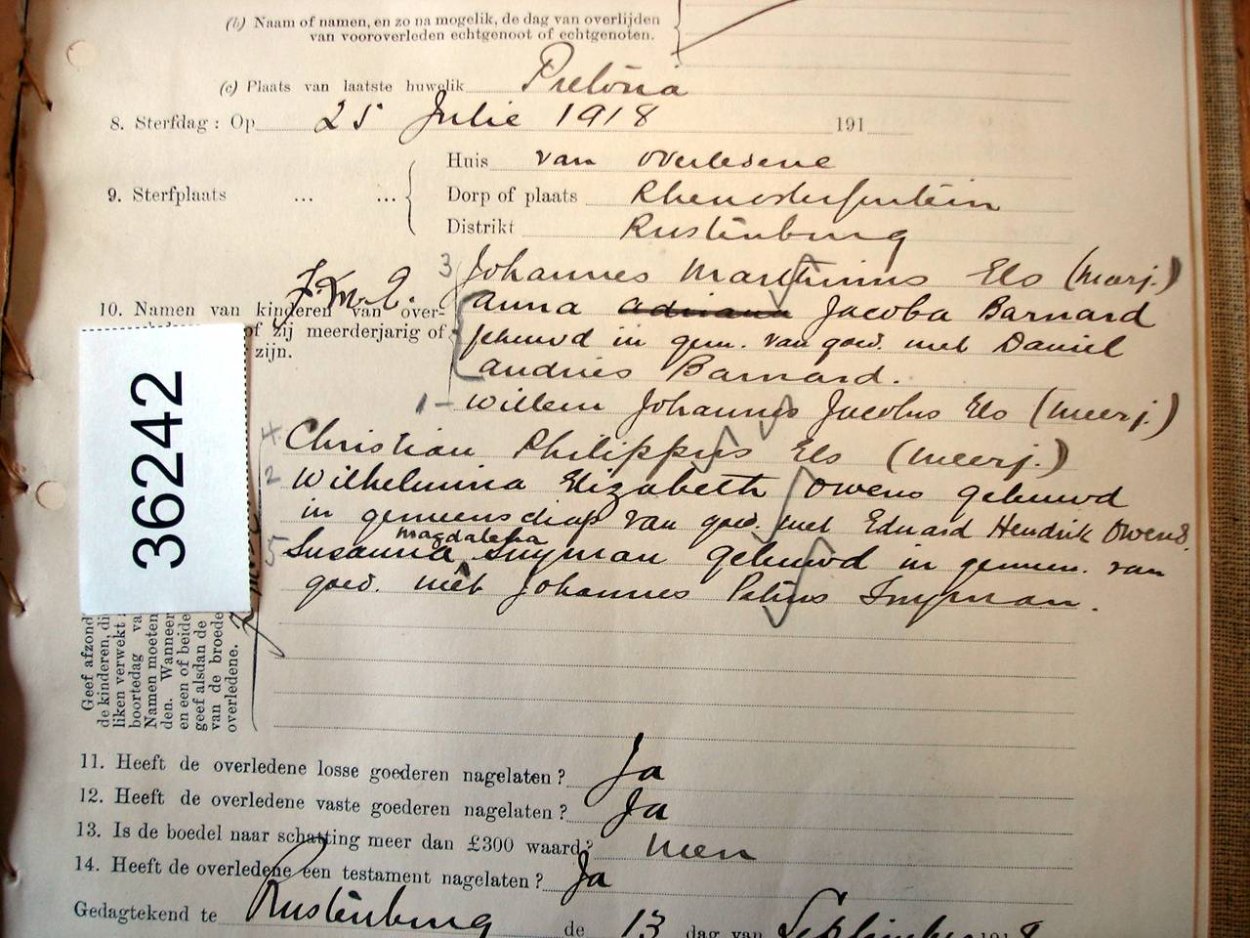 (b) Naam of namen, en zo na mogelik, de dag van overlijden
van vooroverleden echtgenoot of echtgenoten.
(c) Plaats van laatste huwelik Pretoria
8. Sterfdag: Op 25 Julie 1918 191
9. Sterfplaats ... ...
Huis van overledene
Dorp of plaats Rhenosterfontein
Distrikt Rustenburg
10. Namen van kinderen van over-
of zij meerderjarig of
zijn.
J.M.E.
3 Johannes Marthinus Els (meerj.)
Anna Adriana Jacoba Barnard
gehuwd in gem. van goed. met Daniel
Andries Barnard.
1 - Willem Johannes Jacobus Els (meerj.)
4 Christian Philippus Els (meerj.)
2 Wilhelmina Elizabeth Owens gehuwd
in gemeenschap van goed. met Eduard Hendrik Owens.
magdalena
5 Susanna Snyman gehuwd in gemeen. van
goed. met Johannes Petrus Snyman.
36242
Geef afzond
de kinderen, di
liken verwekt
boortedag va
Namen moeten
den. Wanneer
en een of beide
geef alsdan de
van de broede
overledene.
11. Heeft de overledene losse goederen nagelaten? Ja
12. Heeft de overledene vaste goederen nagelaten? Ja
13. Is de boedel naar schatting meer dan £300 waard? Meer
14. Heeft de overledene een testament nagelaten? Ja
Gedagtekend te Rustenburg de 13 dag van September 1918